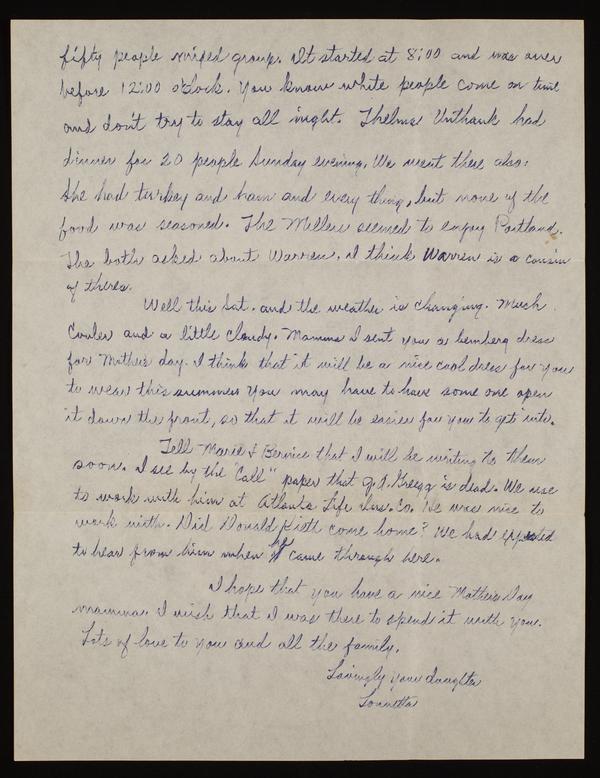 fifty people mixed group. It started at 8:00 and was over
before 12:00 o'clock. You know white people come on time
and don't try to stay all night. Thelma Unthank had
dinner for 20 people Sunday evening. We went there also.
She had turkey and ham and every thing, but none of the
food was seasoned. The Millers seemed to enjoy Portland.
The both asked about Warren. I think Warren is a cousin
of theres.
Well this Sat. and the weather is changing. Much
Cooler and a little cloudy. Mamma I sent you a bemberg dress
for Mothers day. I think that it will be a nice cool dress for you
to wear this summer you may have to have some one open
it down the front, so that it will be easier for you to get into.
Tell Marie & Bernice that I will be writing to them
soon. I see by the "Call" paper that Gregg is dead. We use
to work with him at Atlanta Life Ins. Co. He was nice to
work with. Did Donald Kieth come home? We had expected
to hear from him when he came through here.
I hope that you have a nice Mothers Day
mamma. I wish that I was there to spend it with you.
Lots of love to you and all the family.
Lovingly your daughter